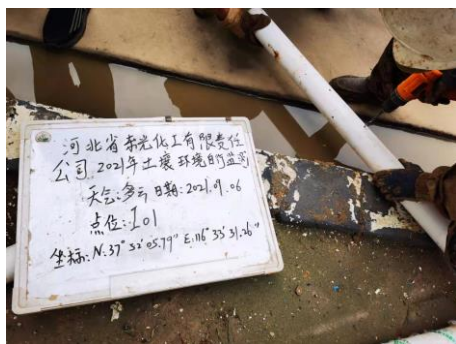 河北省东光化工有限责任
公司2021年土壤环境自行监测
天气:多云 日期:2021.09.06
点位:I01
坐标:N:37°52'05.79" E:116°33'31.26"